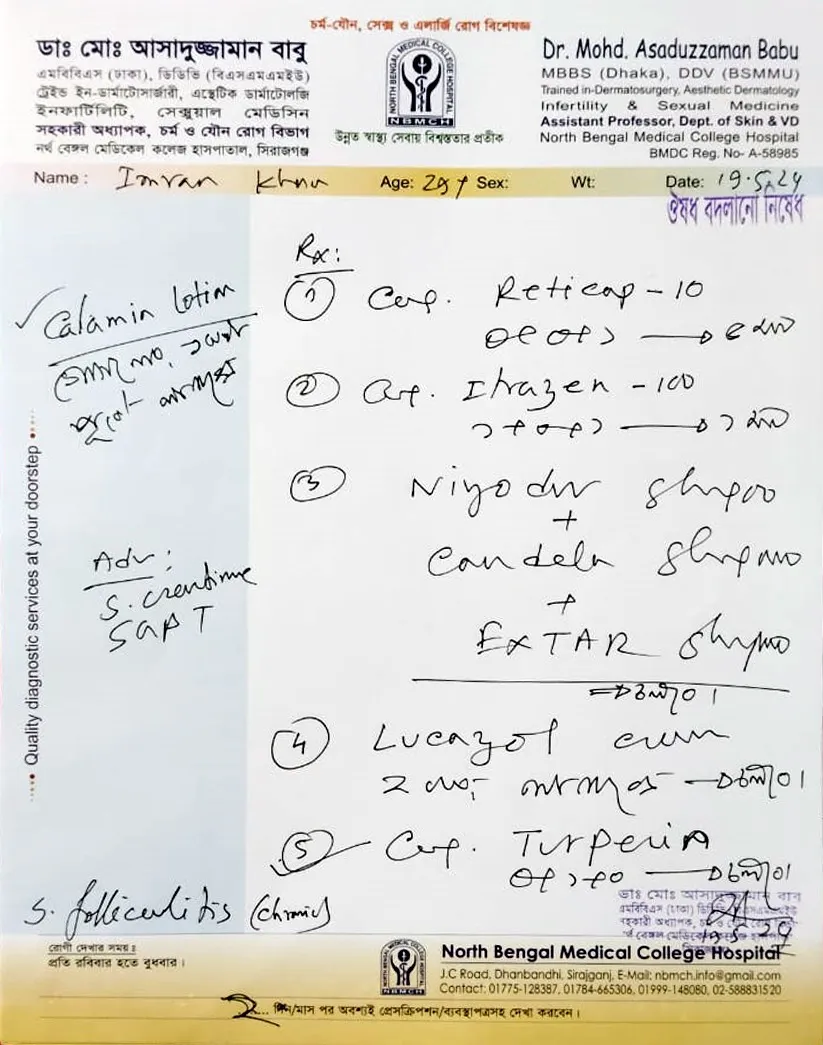 চর্ম-যৌন, সেক্স ও এলার্জি রোগ বিশেষজ্ঞ
ডাঃ মোঃ আসাদুজ্জামান বাবু
এমবিবিএস (ঢাকা), ডিডিভি (বিএসএমএমইউ)
ট্রেইন্ড ইন-ডার্মাটোসার্জারী, এস্থেটিক ডার্মাটোলজি
ইনফার্টিলিটি, সেক্সুয়াল মেডিসিন
সহকারী অধ্যাপক, চর্ম ও যৌন রোগ বিভাগ
নর্থ বেঙ্গল মেডিকেল কলেজ হাসপাতাল, সিরাজগঞ্জ
NORTH BENGAL MEDICAL COLLEGE HOSPITAL
NBMCH
উন্নত স্বাস্থ্য সেবায় বিশ্বস্ততার প্রতীক
Dr. Mohd. Asaduzzaman Babu
MBBS (Dhaka), DDV (BSMMU)
Trained in-Dermatosurgery, Aesthetic Dermatology
Infertility & Sexual Medicine
Assistant Professor, Dept. of Skin & VD
North Bengal Medical College Hospital
BMDC Reg. No- A-58985
Name : Imran Khan Age: 29y Sex: Wt: Date: 19.5.24
ঔষধ বদলানো নিষেধ
Calamin lotion
Adv:
S. creatinine
SGPT
Rx:
① Cap. Reticap - 10
০+০+১ → ৫ মাস
② Cap. Itrazen - 100
১+০+১ → ১ মাস
③ Niyodin
+
Candela
+
EXTAR
→ চলবে।
④ Lucazol cream
→ চলবে।
⑤ Cap. Turperia
০+১+০ → চলবে।
S. folliculitis (chronic)
Quality diagnostic services at your doorstep
ডাঃ মোঃ আসাদুজ্জামান বাবু
এমবিবিএস (ঢাকা)
সহকারী অধ্যাপক,
19.5.24
রোগী দেখার সময় :
প্রতি রবিবার হতে বুধবার।
NBMCH
North Bengal Medical College Hospital
J.C Road, Dhanbandhi, Sirajganj, E-Mail: nbmch.info@gmail.com
Contact: 01775-128387, 01784-665306, 01999-148080, 02-588831520
২... দিন/মাস পর অবশ্যই প্রেসক্রিপশন/ব্যবস্থাপত্রসহ দেখা করবেন।